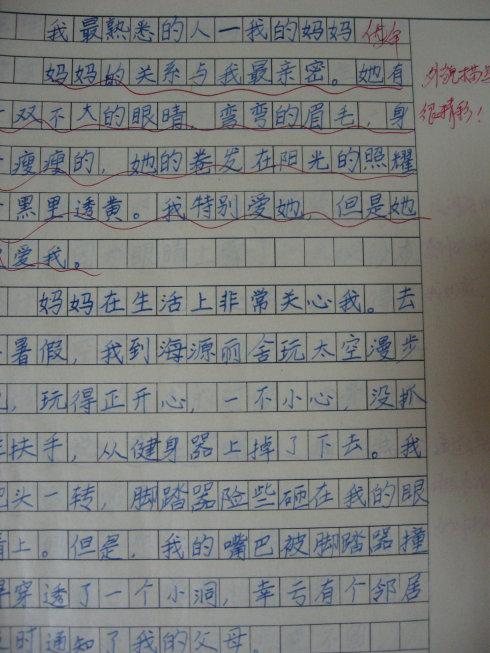 我最熟悉的人—我的妈妈
妈妈的关系与我最亲密。她有
双不大的眼睛，弯弯的眉毛，身
瘦瘦的，她的卷发在阳光的照耀
黑里透黄。我特别爱她，但是她
爱我。
妈妈在生活上非常关心我。去
暑假，我到海源丽舍玩太空漫步
玩得正开心，一不小心，没抓
扶手，从健身器上掉了下去。我
头一转，脚踏器险些砸在我的眼
上。但是，我的嘴巴被脚踏器撞
穿透了一个小洞，幸亏有个邻居
时通知了我的父母。
外貌描
很精彩！